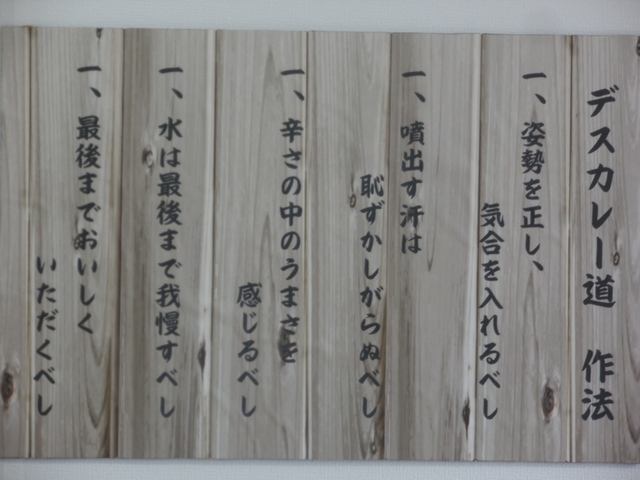 デスカレー道 作法
一、姿勢を正し、
気合を入れるべし
一、噴出す汗は
恥ずかしがらぬべし
一、辛さの中のうまさを
感じるべし
一、水は最後まで我慢すべし
一、最後までおいしく
いただくべし